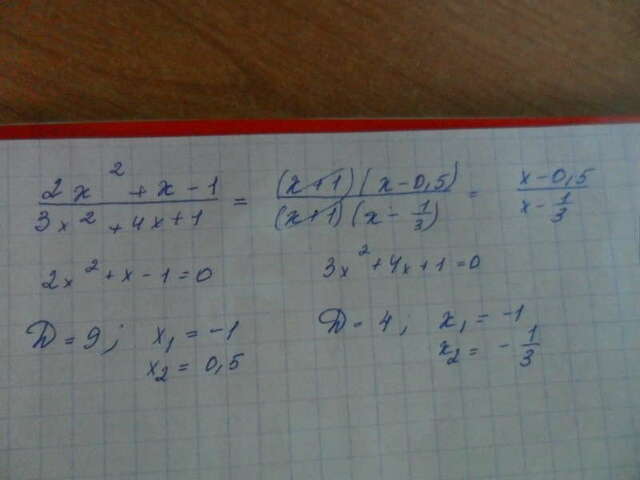 (2x² + x - 1)/(3x² + 4x + 1) = ((x+1)(x-0,5))/((x+1)(x - 1/3)) = (x-0,5)/(x - 1/3)
2x² + x - 1 = 0    3x² + 4x + 1 = 0
D = 9; x₁ = -1    D = 4; x₁ = -1
x₂ = 0,5    x₂ = - 1/3